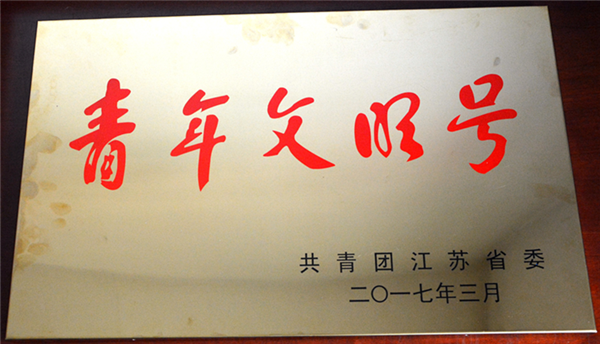 青年文明号
共青团江苏省委
二〇一七年三月